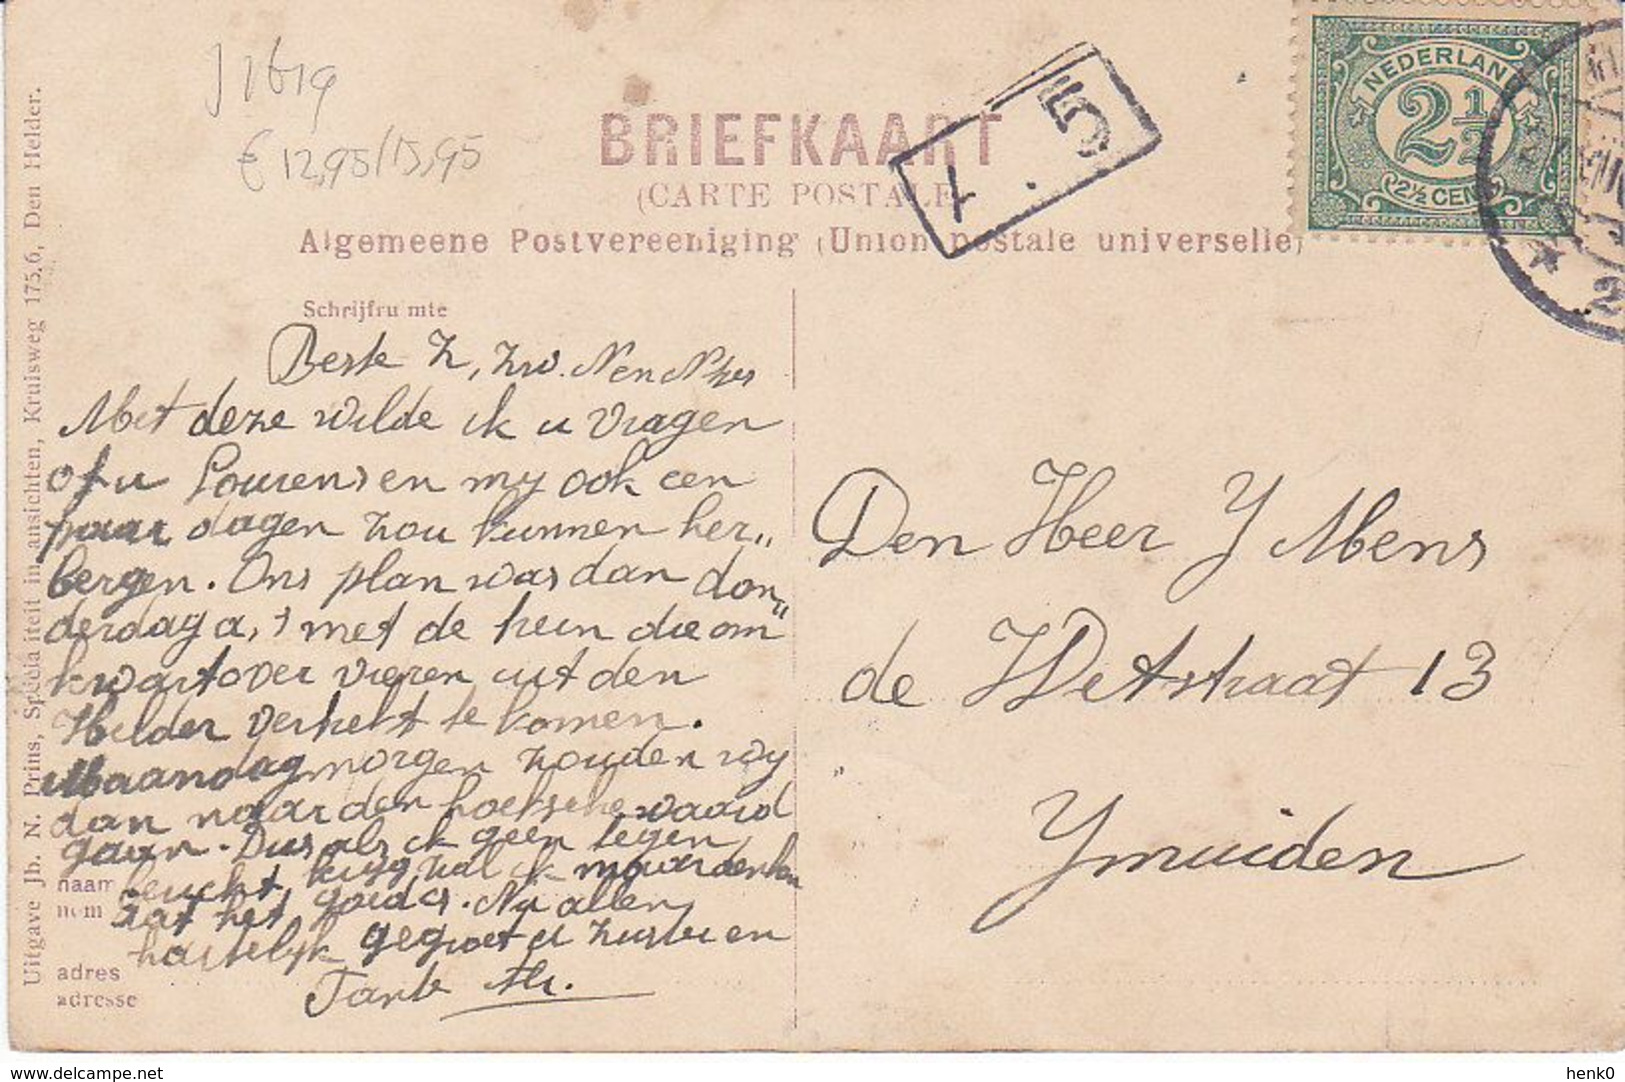 J 1619
€ 12,95/15,95
BRIEFKAART
(CARTE POSTALE)
Algemeene Postvereeniging (Union postale universelle)
NEDERLAND
2½
2½ CENT
5
Uitgave Jb. N. Prins, Specialiteit in ansichten, Kruisweg 175,6, Den Helder.
Schrijfruimte
Beste Z, Zw. N en
Met deze wilde ik u vragen
of u Lourens en my ook een
paar dagen zou kunnen her„
bergen. Ons plan was dan don„
derdag a,s met de trein die om
kwart over vieren uit den
Helder vertrekt te komen.
Maandagmorgen zouden wy
dan naar den hoekschewaard
gaan. Dus als ik geen tegen
bericht kryg zal ik maar denken
dat het goed is. Nu allen
hartelijk gegroet u zuster en
Tante
naam
nom
adres
adresse
Den Heer J Mens
de Wetstraat 13
Ymuiden
henk0
https://www.delcampe.net